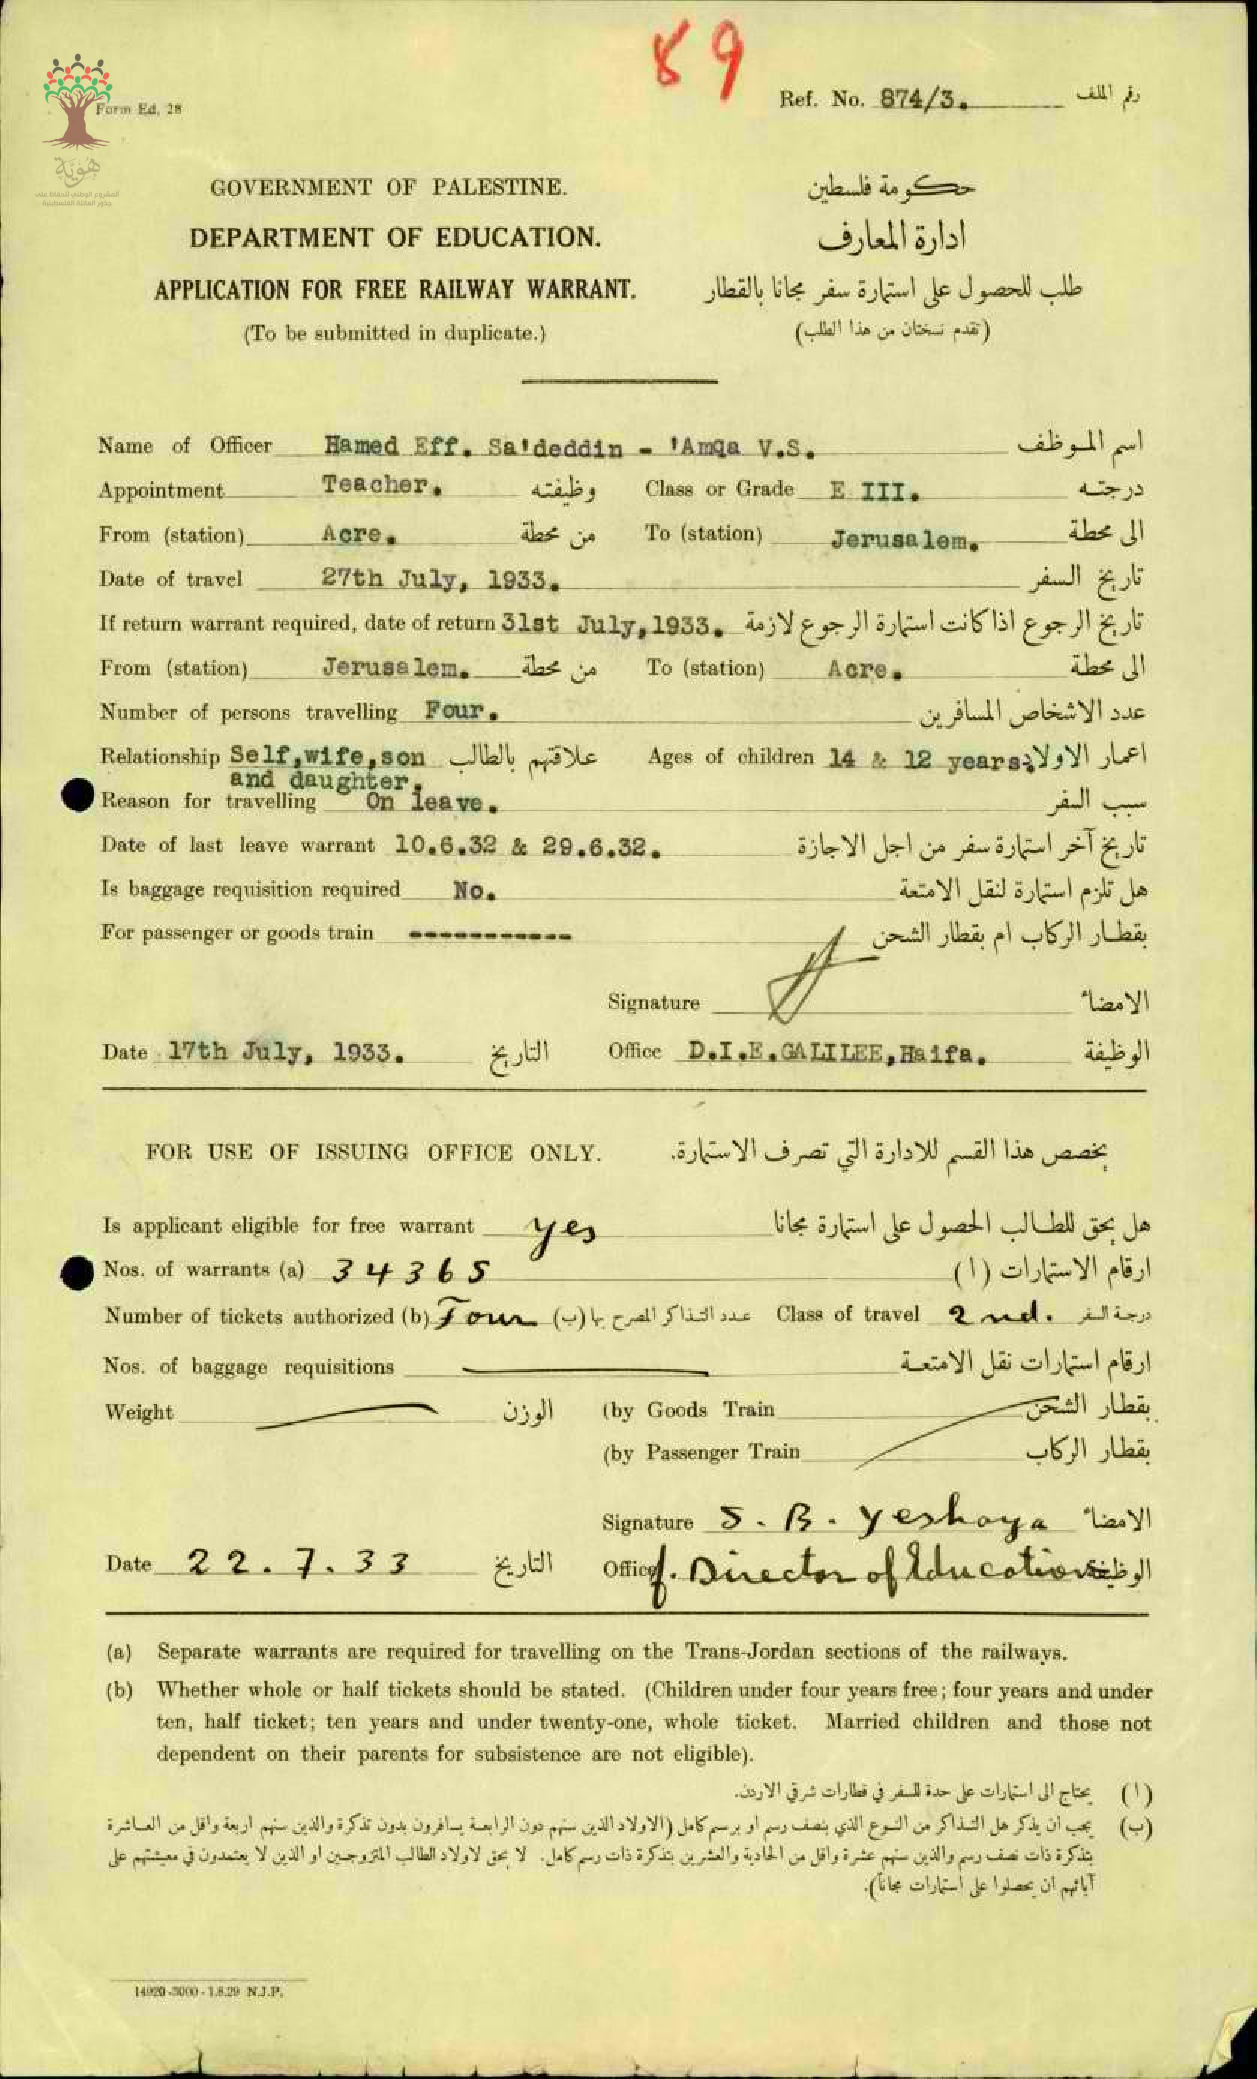 89
Ref. No. 874/3. رقم الملف
Form Ed. 28
هُويّة
المشروع الوطني للحفاظ على
جذور العائلة الفلسطينية
GOVERNMENT OF PALESTINE. حكومة فلسطين
DEPARTMENT OF EDUCATION. ادارة المعارف
APPLICATION FOR FREE RAILWAY WARRANT. طلب للحصول على استمارة سفر مجانا بالقطار
(To be submitted in duplicate.) (تقدم نسختان من هذا الطلب)
Name of Officer Hamed Eff. Sa'deddin - 'Amqa V.S. اسم الموظف
Appointment Teacher. وظيفته Class or Grade E III. درجته
From (station) Acre. من محطة To (station) Jerusalem. الى محطة
Date of travel 27th July, 1933. تاريخ السفر
If return warrant required, date of return 31st July,1933. تاريخ الرجوع اذا كانت استمارة الرجوع لازمة
From (station) Jerusalem. من محطة To (station) Acre. الى محطة
Number of persons travelling Four. عدد الاشخاص المسافرين
Relationship Self,wife,son علاقتهم بالطالب Ages of children 14 & 12 years. اعمار الاولاد
and daughter.
Reason for travelling On leave. سبب السفر
Date of last leave warrant 10.6.32 & 29.6.32. تاريخ آخر استمارة سفر من اجل الاجازة
Is baggage requisition required No. هل تلزم استمارة لنقل الامتعة
For passenger or goods train ----------- بقطار الركاب ام بقطار الشحن
Signature الامضاء
Date 17th July, 1933. التاريخ Office D.I.E.GALILEE,Haifa. الوظيفة
FOR USE OF ISSUING OFFICE ONLY. يخصص هذا القسم للادارة التي تصرف الاستمارة.
Is applicant eligible for free warrant yes هل يحق للطالب الحصول على استمارة مجانا
Nos. of warrants (a) 34365 ارقام الاستمارات (ا)
Number of tickets authorized (b) Four عدد التذاكر المصرح بها (ب) Class of travel 2nd. درجة السفر
Nos. of baggage requisitions ارقام استمارات نقل الامتعة
Weight الوزن (by Goods Train بقطار الشحن
(by Passenger Train بقطار الركاب
Signature S. B. Yeshaya الامضاء
Date 22.7.33 التاريخ Office f. Director of Education الوظيفة
(a) Separate warrants are required for travelling on the Trans-Jordan sections of the railways.
(b) Whether whole or half tickets should be stated. (Children under four years free; four years and under
ten, half ticket; ten years and under twenty-one, whole ticket. Married children and those not
dependent on their parents for subsistence are not eligible).
(ا) يحتاج الى استمارات على حدة للسفر في قطارات شرقي الاردن.
(ب) يجب ان يذكر هل التذاكر من النوع الذي بنصف رسم او برسم كامل (الاولاد الذين سنهم دون الرابعة يسافرون بدون تذكرة والذين سنهم اربعة واقل من العاشرة
بتذكرة ذات نصف رسم والذين سنهم عشرة واقل من الحادية والعشرين بتذكرة ذات رسم كامل. لا يحق لاولاد الطالب المتزوجين او الذين لا يعتمدون في معيشتهم على
آبائهم ان يحصلوا على استمارات مجاناً).
14920-3000-1.8.29 N.J.P.